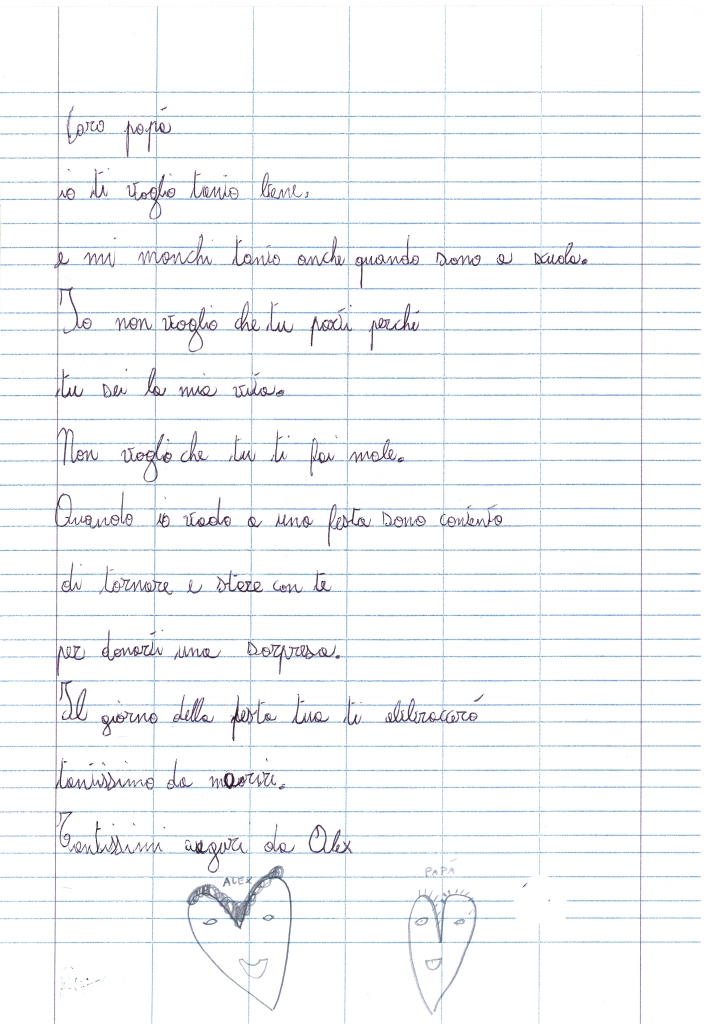 Caro papà
io ti voglio tanto bene,
e mi manchi tanto anche quando sono a scuola.
Io non voglio che tu parti perché
tu sei la mia vita.
Non voglio che tu ti fai male.
Quando io vado a una festa sono contento
di tornare e stare con te
per donarti una sorpresa.
Il giorno della festa tua ti abbraccerò
tantissimo da morire.
Tantissimi auguri da Alex
ALEX
PAPÀ